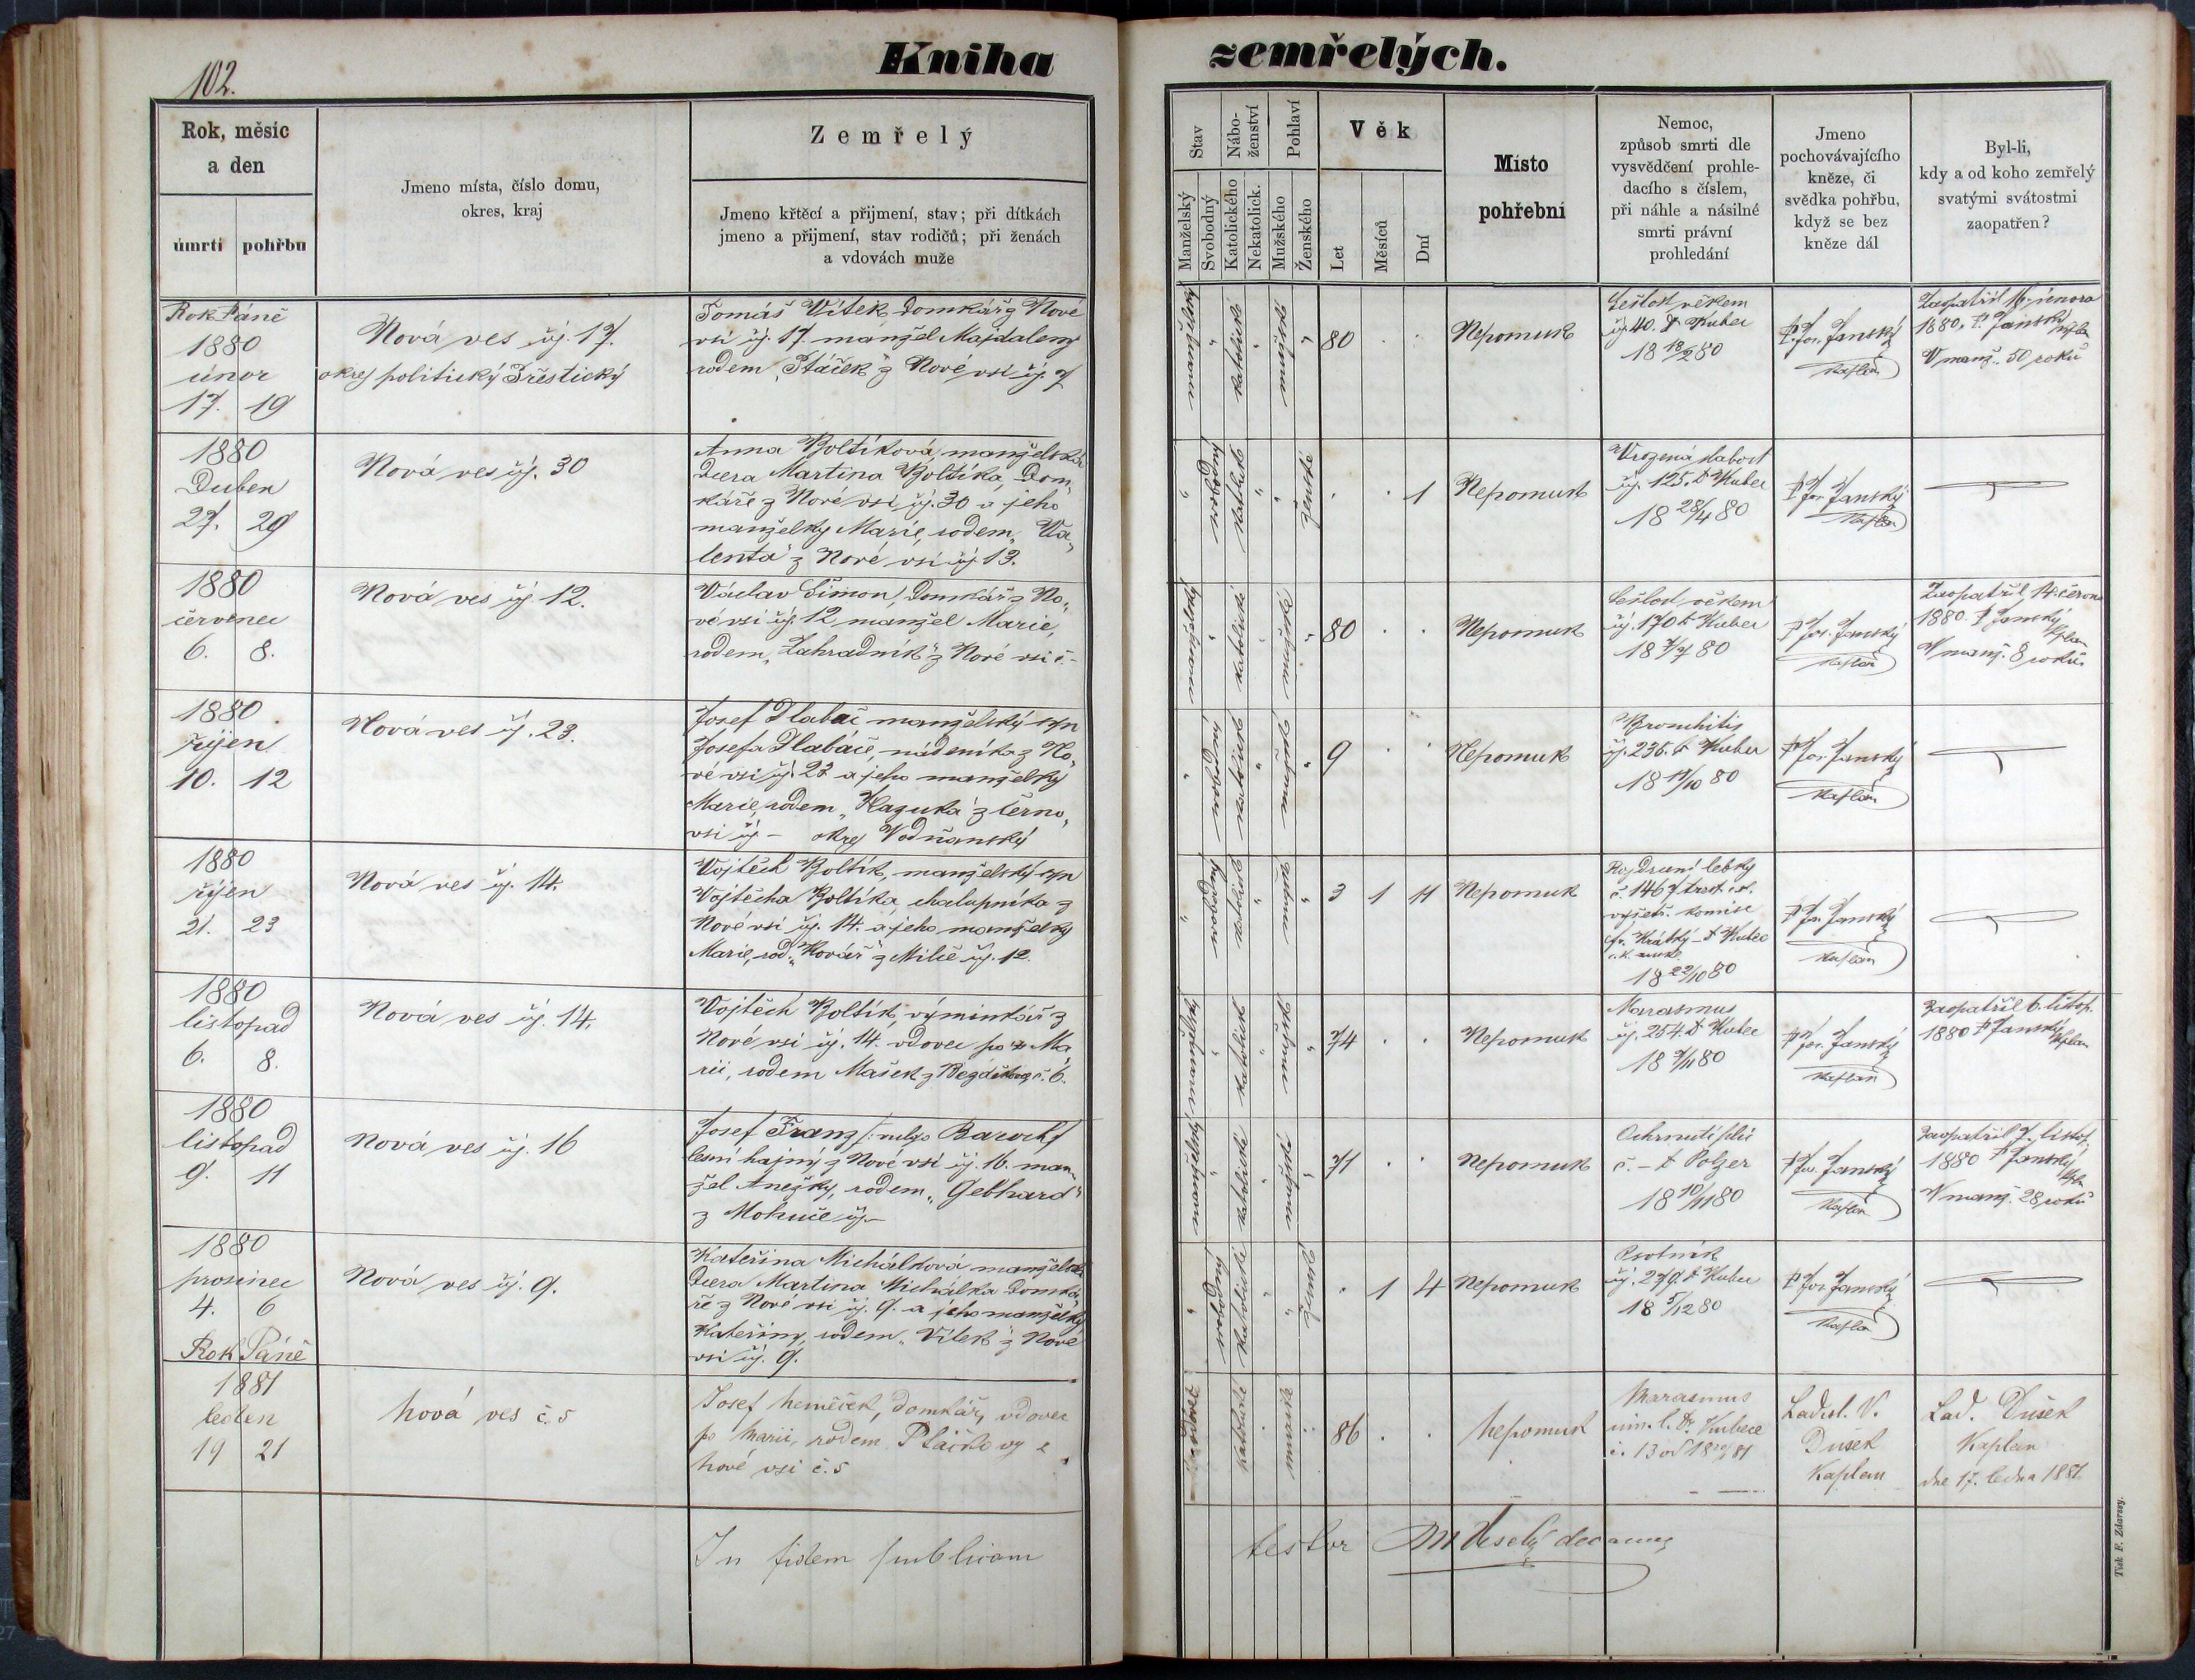 102.
Kniha zemřelých.
Rok, měsíc
a den
úmrtí pohřbu
Jmeno místa, číslo domu,
okres, kraj
Zemřelý
Jmeno křtěcí a přijmení, stav; při dítkách
jmeno a přijmení, stav rodičů; při ženách
a vdovách muže
Stav
Manželský
Svobodný
Nábo-
ženství
Katolického
Nekatolick.
Pohlaví
Mužského
Ženského
Věk
Let
Měsíců
Dní
Místo
pohřební
Nemoc,
způsob smrti dle
vysvědčení prohle-
dacího s číslem,
při náhle a násilné
smrti právní
prohledání
Jmeno
pochovávajícího
kněze, či
svědka pohřbu,
když se bez
kněze dál
Byl-li,
kdy a od koho zemřelý
svatými svátostmi
zaopatřen?
Rok Páně
1880
únor
17. 19
Nová ves čj. 17.
okres politický Přeštický
Tomáš Vítek Domkář z Nové
vsi čj. 17. manžel Majdaleny
rodem „Ptáček" z Nové vsi čj. 7
manželský
katolické
mužské
80
Nepomuk
Sešlost věkem
čj. 40. D Kubec
18 18/2 80
P. Jos. Janský
Kaplan
Zaopatřil 16. února
1880. P. Janský
V manž. 50 roků
1880
Duben
27. 29
Nová ves čj. 30
Anna Boltíková, manželská
dcera Martina Boltíka, Dom„
káře z Nové vsi čj. 30 a jeho
manželky Marie, rodem „Va„
lenta" z Nové vsi čj. 13.
svobodný
katolické
ženské
1
Nepomuk
Vrozená slabost
čj. 125. D Kubec
18 28/4 80
P Jos. Janský
Kaplan
1880
červenec
6. 8.
Nová ves čj. 12.
Václav Šimon, Domkář z No„
vé vsi čj. 12 manžel Marie,
rodem „Zahradník" z Nové vsi č –
manželský
katolické
mužské
80
Nepomuk
Sešlost věkem
čj. 170 D Kubec
18 7/7 80
P Jos. Janský
Kaplan
Zaopatřil 14. června
1880. P Janský
Kplan
V manž. 8 roků.
1880
říjen
10. 12
Nová ves čj. 23.
Josef Dlabač manželský syn
Josefa Dlabače, nádeníka z No„
vé vsi čj. 23 a jeho manželky
Marie, rodem „Kazuka" z černo„
vsi čj – okres Vodňanský
svobodný
katolické
mužské
9
Nepomuk
Bronchitis
čj. 236. D Kubec
18 11/10 80
P Jos. Janský
Kaplan
1880
říjen
21. 23
Nová ves čj. 14.
Vojtěch Boltík, manželský syn
Vojtěcha Boltíka, chalupníka z
Nové vsi čj. 14. a jeho manželky
Marie, rod. „Kovář" z Milče čj. 12
svobodný
katolické
mužské
3 1 11
Nepomuk
Rozdrcení lebky
č. 1467 trest. c.k.
vyšetř. komise
Krátký – D Kubec
18 22/10 80
P Jos. Janský
Kaplan
1880
listopad
6. 8.
Nová ves čj. 14.
Vojtěch Boltík, výminkář z
Nové vsi čj. 14. vdovec po Ma
rii, rodem Mašek z č. 6.
manželský
katolické
mužské
74
Nepomuk
Marasmus
čj. 254 D Kubec
18 7/11 80
P Jos. Janský
Kaplan
Zaopatřil 6. listop.
1880 P Janský
Kplan
1880
listopad
9. 11
Nová ves čj. 16
Josef Franz /: nebo Baroch :/
lesní hajný z Nové vsi čj. 16. man„
žel Anežky, rodem „Gebhard"
z Mohuče čj –
manželský
katolické
mužské
71
Nepomuk
Ochrnutí plic
č. – D Polzer
18 10/11 80
P Jos. Janský
Kaplan
Zaopatřil 7. listop.
1880 P Janský
Kplan
V manž. 28 roků
1880
prosinec
4. 6
Nová ves čj. 9.
Kateřina Michálková manželská
dcera Martina Michálka Domká
ře z Nové vsi čj. 9. a jeho manželky
Kateřiny, rodem „Vítek" z Nové
vsi čj. 9.
svobodný
katolické
ženské
1 4
Nepomuk
Psotník
čj. 279. D Kubec
18 5/12 80
P Jos Janský
Kaplan
Rok Páně
1881
leden
19 21
Nová ves č. 5
Josef Němeček, domkář, vdovec
po Marii, rodem Ptáčkovy z
Nové vsi č. 5
vdovec
katolické
mužské
86
Nepomuk
Marasmus
Dr. Kubece
č. 13 od 18 20/1 81
Ladisl. V.
Dušek
Kaplan
Lad. Dušek
Kaplan
dne 17. ledna 1881.
In fidem publicam
testor Veselý decanus
Tisk F. Zdarssy.